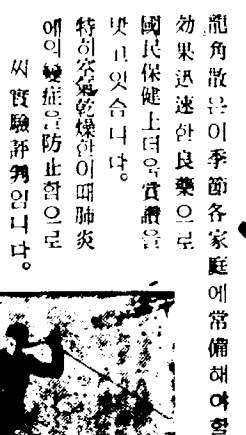 龍角散은이季節各家庭에常備해야할
効果迅速한良藥으로
國民保健上더욱賞讚을
밧고잇습니다。
特히空氣乾燥한이때肺炎
에의變症을防止함으로
써實驗評判입니다。